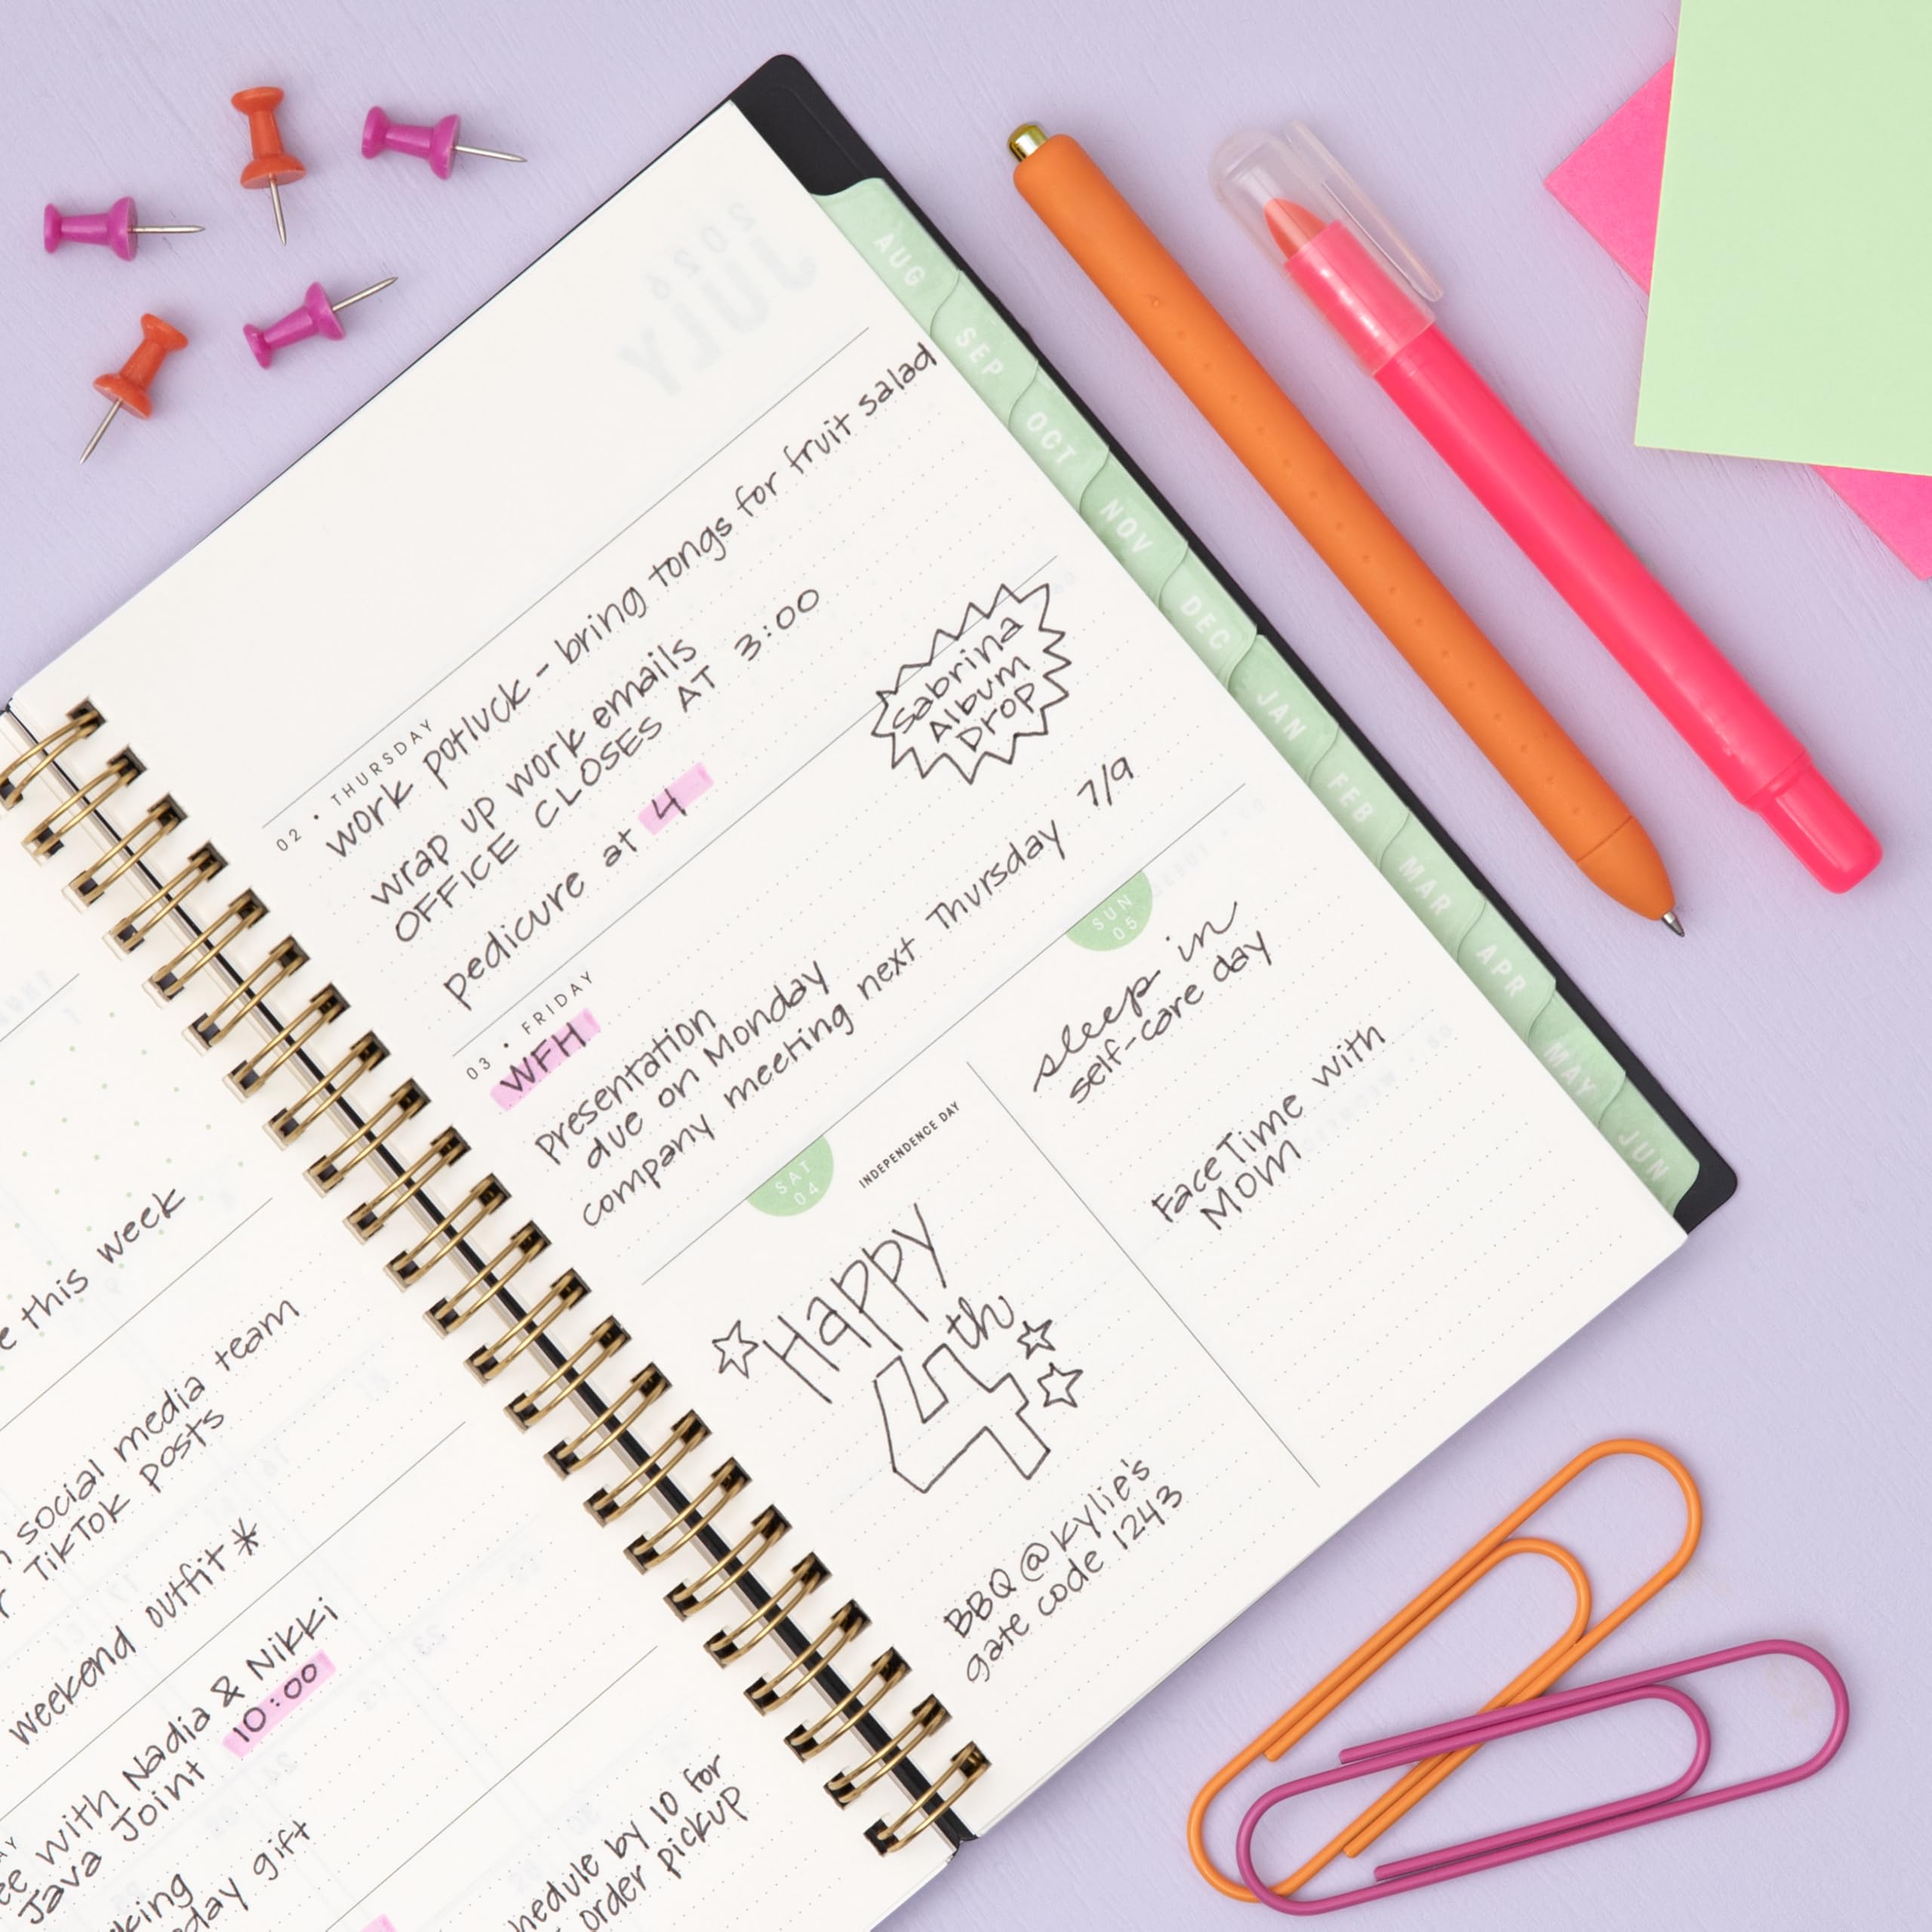 this week
social media team
TikTok posts
weekend outfit *
with Nadia & Nikki
Java Joint 10:00
gift
by 10 for
order pickup
JULY
2026
02 • THURSDAY
work potluck - bring tongs for fruit salad
wrap up work emails
OFFICE CLOSES AT 3:00
pedicure at 4
03 • FRIDAY
WFH
Sabrina
Album
Drop
Presentation
due on Monday
company meeting next Thursday 7/9
SAT
04
INDEPENDENCE DAY
Happy
4th
BBQ @ Kylie's
gate code 1243
SUN
05
sleep in
self-care day
FaceTime with
MOM
AUG
SEP
OCT
NOV
DEC
JAN
FEB
MAR
APR
MAY
JUN